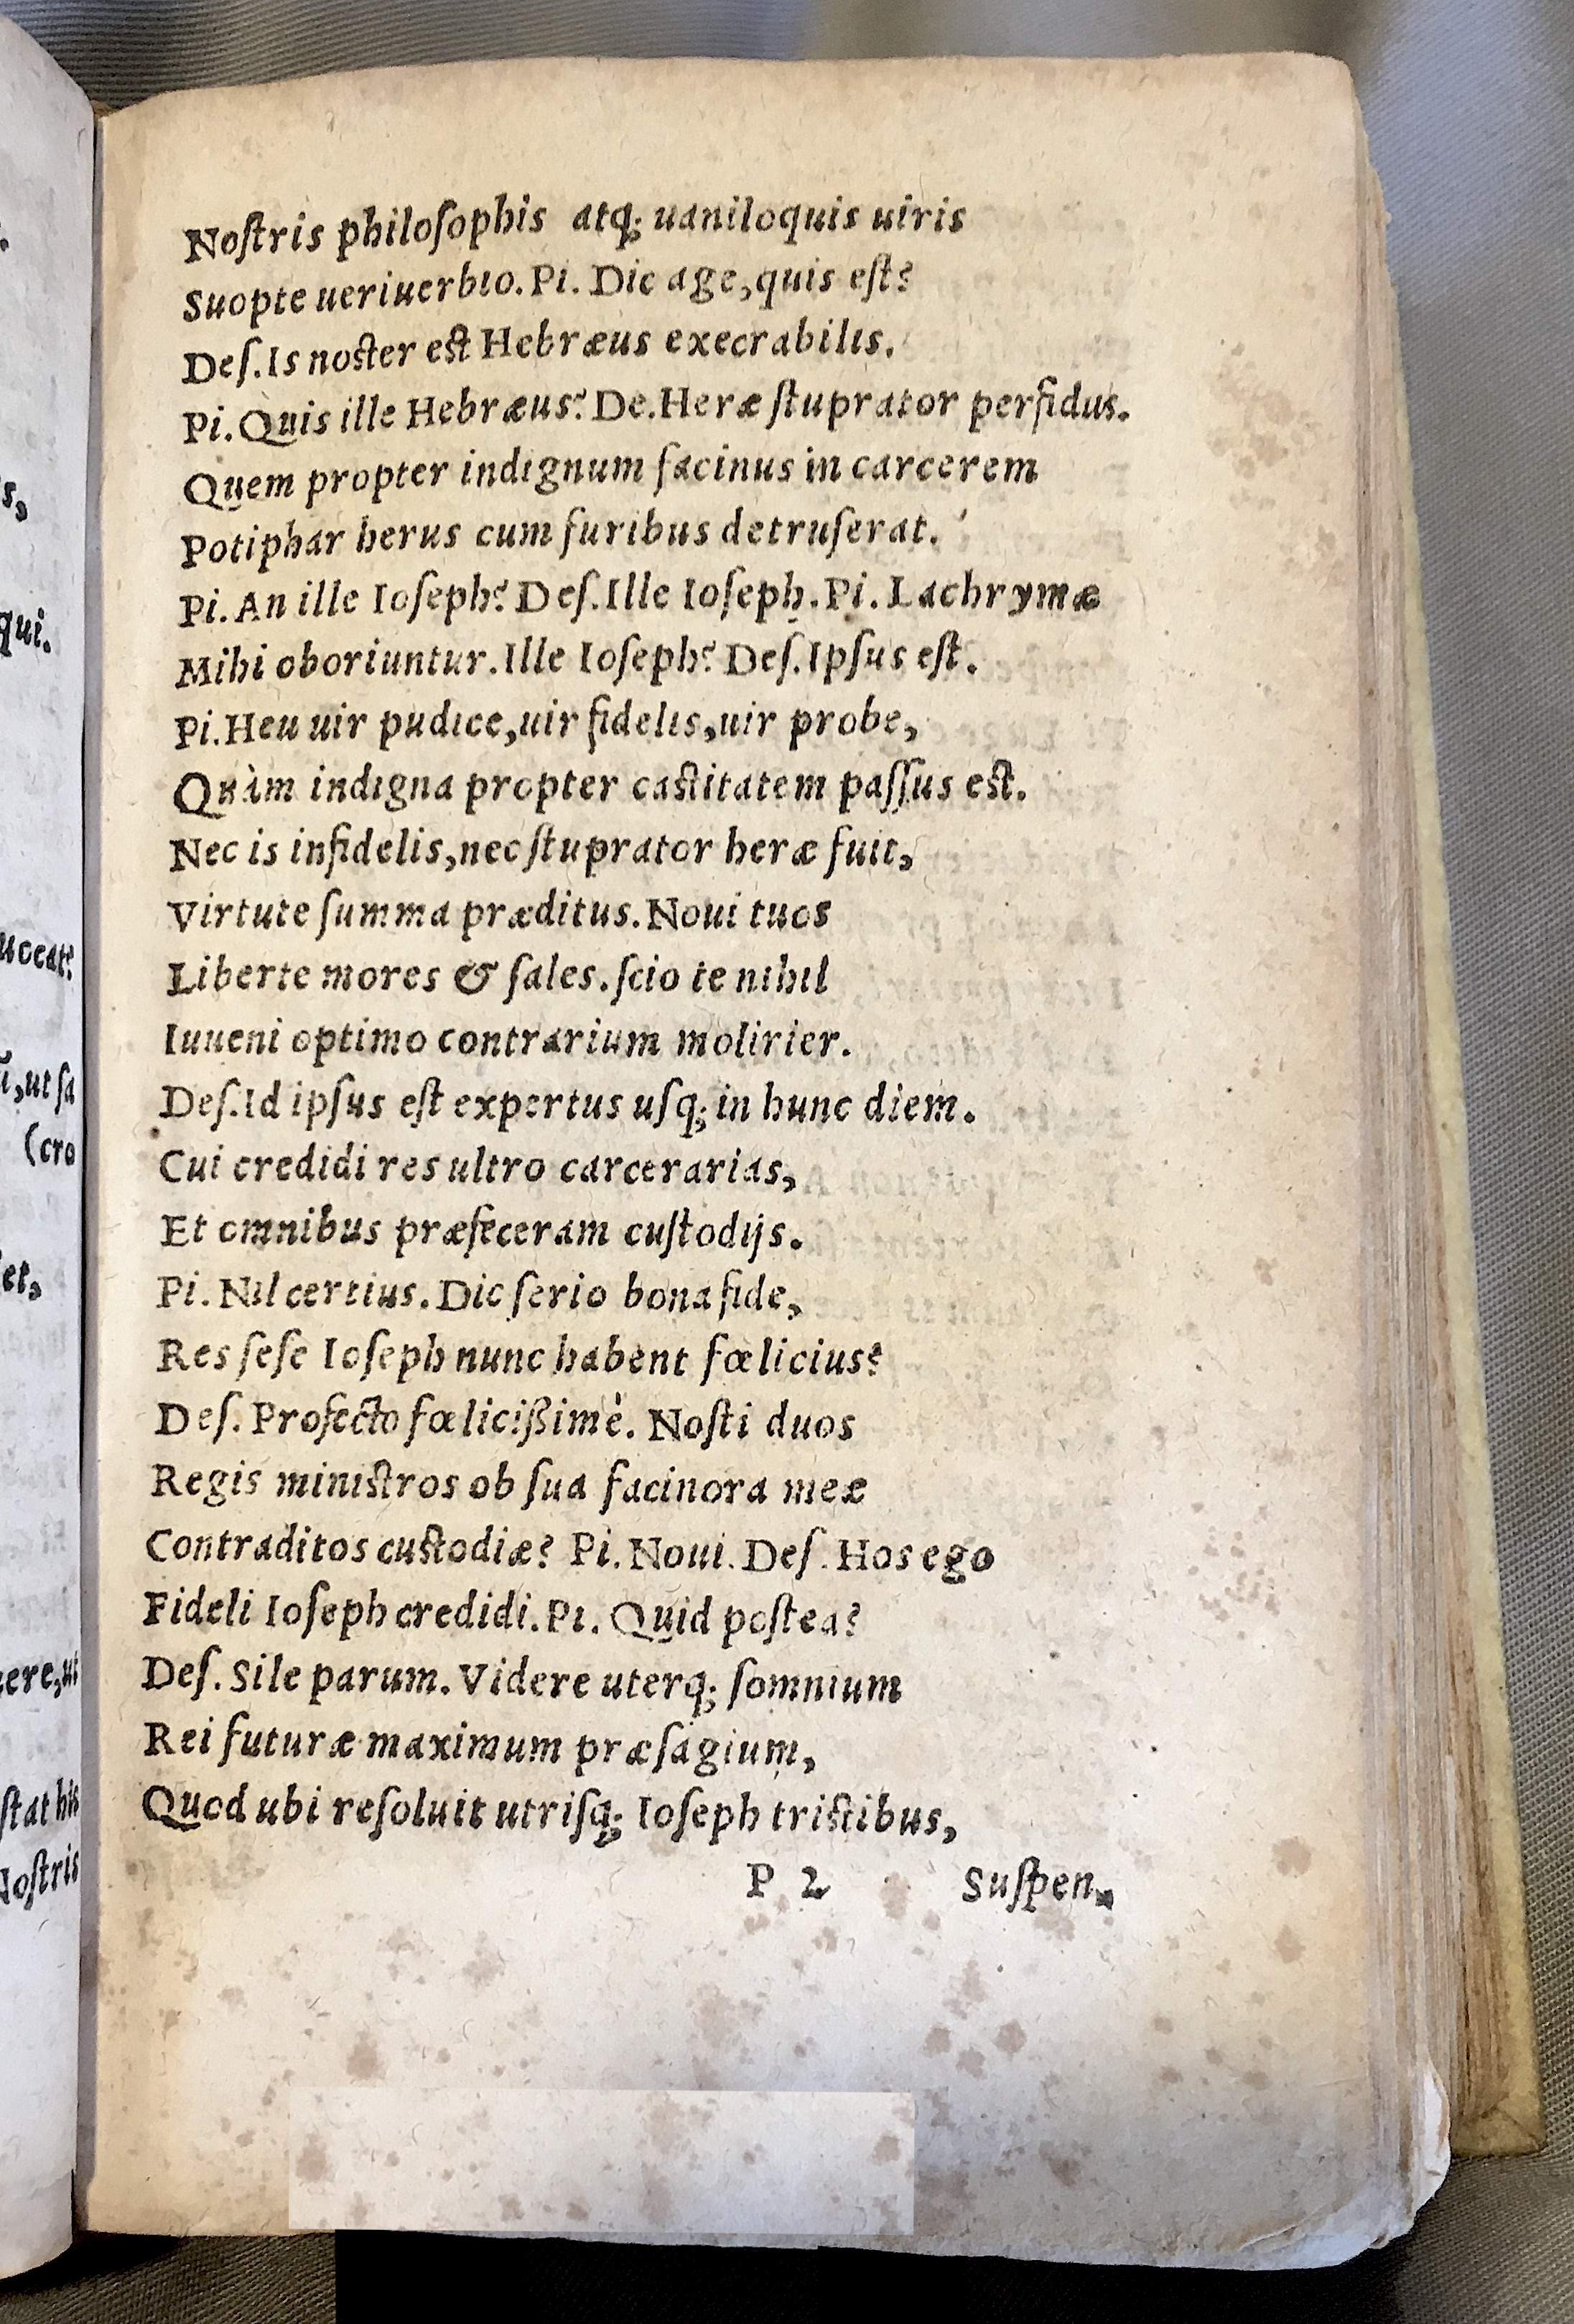 Nostris philosophis atq; uaniloquis uiris
Suopte ueriuerbio. Pi. Dic age, quis est?
Des. Is noster est Hebræus execrabilis.
Pi. Quis ille Hebræus? De. Heræ stuprator perfidus.
Quem propter indignum facinus in carcerem
Potiphar herus cum furibus detruserat.
Pi. An ille Ioseph? Des. Ille Ioseph. Pi. Lachrymæ
Mihi oboriuntur. Ille Ioseph? Des. Ipsus est.
Pi. Heu uir pudice, uir fidelis, uir probe,
Quàm indigna propter castitatem passus est.
Nec is infidelis, nec stuprator heræ fuit,
Virtute summa præditus. Noui tuos
Liberte mores & sales. scio te nihil
Iuueni optimo contrarium molirier.
Des. Id ipsus est expertus usq; in hunc diem.
Cui credidi res ultro carcerarias,
Et omnibus præfeceram custodijs.
Pi. Nil certius. Dic serio bona fide,
Res sese Ioseph nunc habent fœlicius?
Des. Profecto fœlicißimè. Nosti duos
Regis ministros ob sua facinora meæ
Contraditos custodiæ? Pi. Noui. Des. Hos ego
Fideli Ioseph credidi. Pi. Quid postea?
Des. Sile parum. Videre uterq; somnium
Rei futuræ maximum præsagium,
Quod ubi resoluit utrisq; Ioseph tristibus,
P 2 Suspen-
qui.
uoeat?
(cro
stat his
Nostris